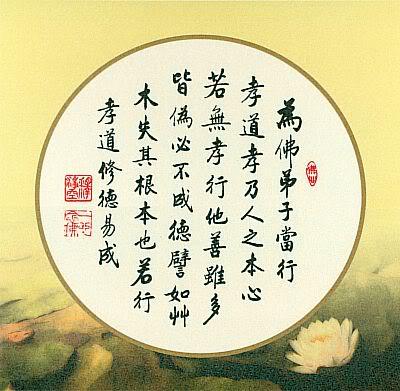 為佛弟子當行
孝道孝乃人之本心
若無孝行他善雖多
皆偽必不成德譬如艸
木失其根本也若行
孝道修德易成